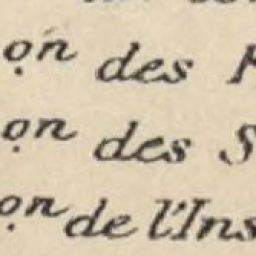 on des
on des S
on de l'Ins